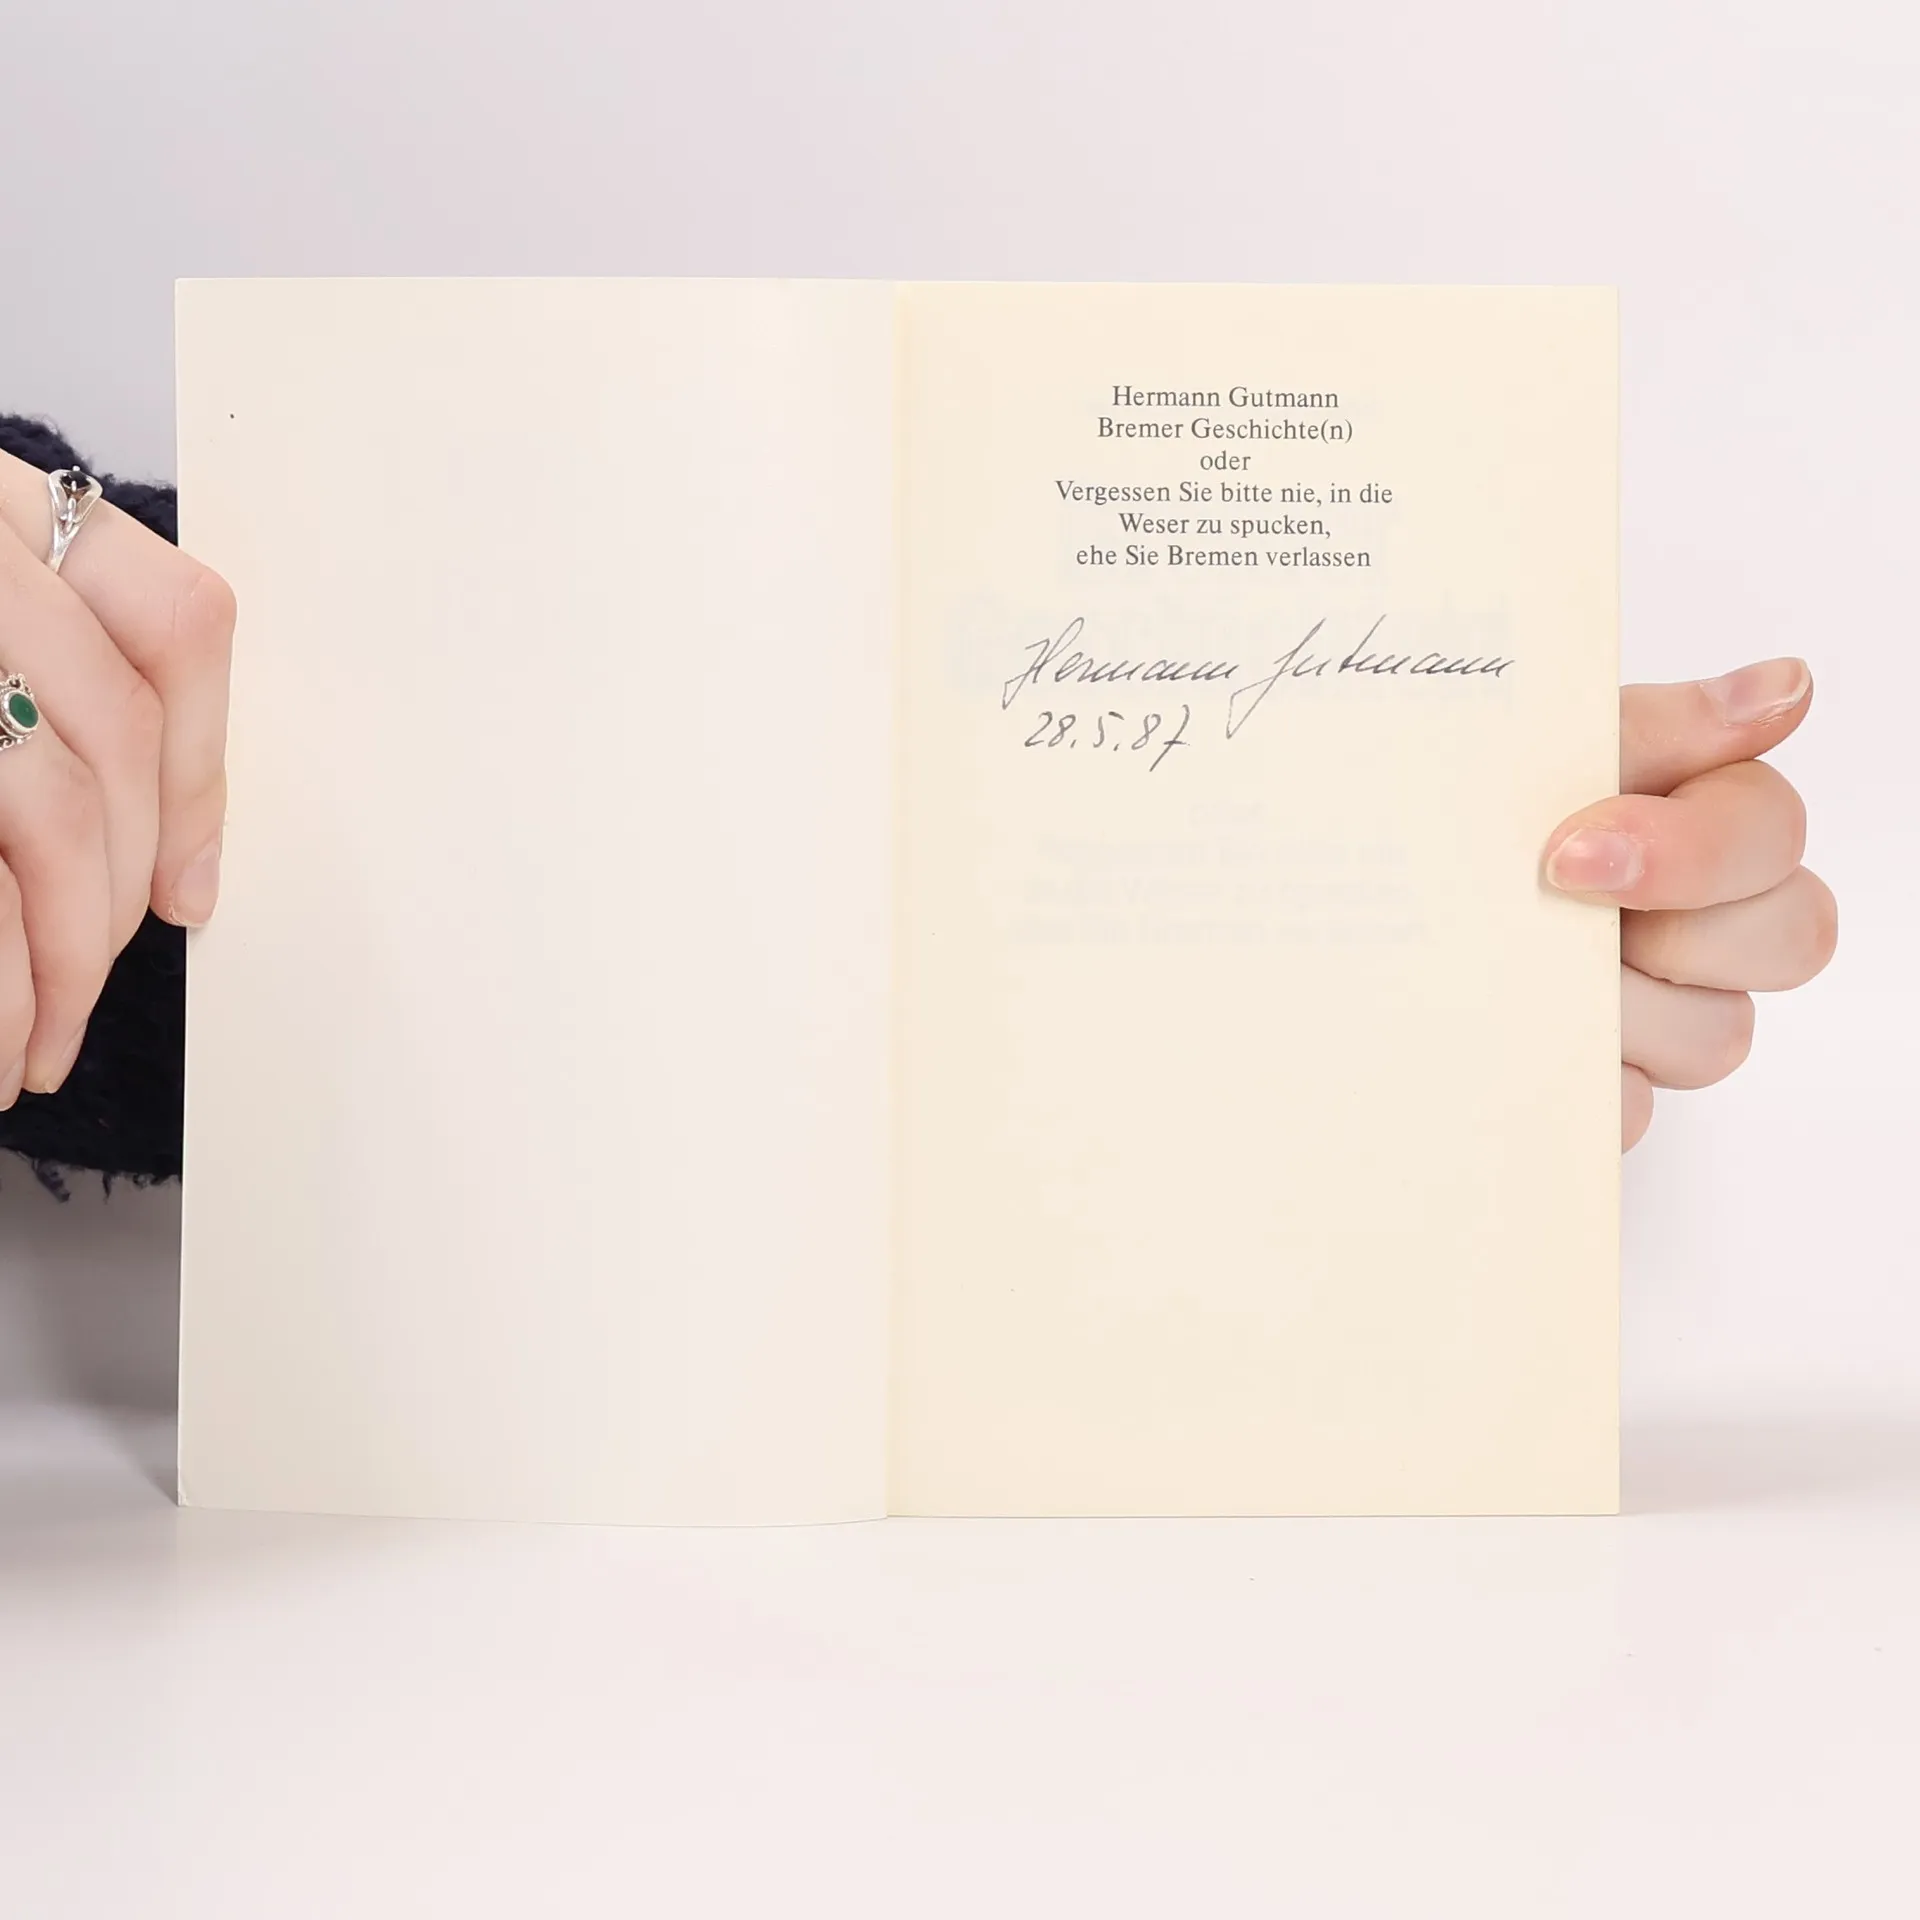 Hermann Gutmann
Bremer Geschichte(n)
oder
Vergessen Sie bitte nie, in die
Weser zu spucken,
ehe Sie Bremen verlassen
Hermann Gutmann
28.5.87